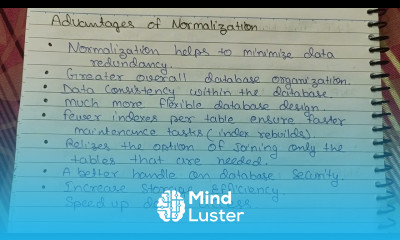 Advantages of Normalization.
• Normalization helps to minimize data
redundancy.
• Greater overall database organization.
• Data consistency within the database.
• much more flexible database design.
• fewer indexes per table ensure faster
maintenance tasks (index rebuilds).
• Relizes the option of joining only the
tables that are needed.
• A better handle on database security.
• Increase storage efficiency.
Speed up
Mind
Luster